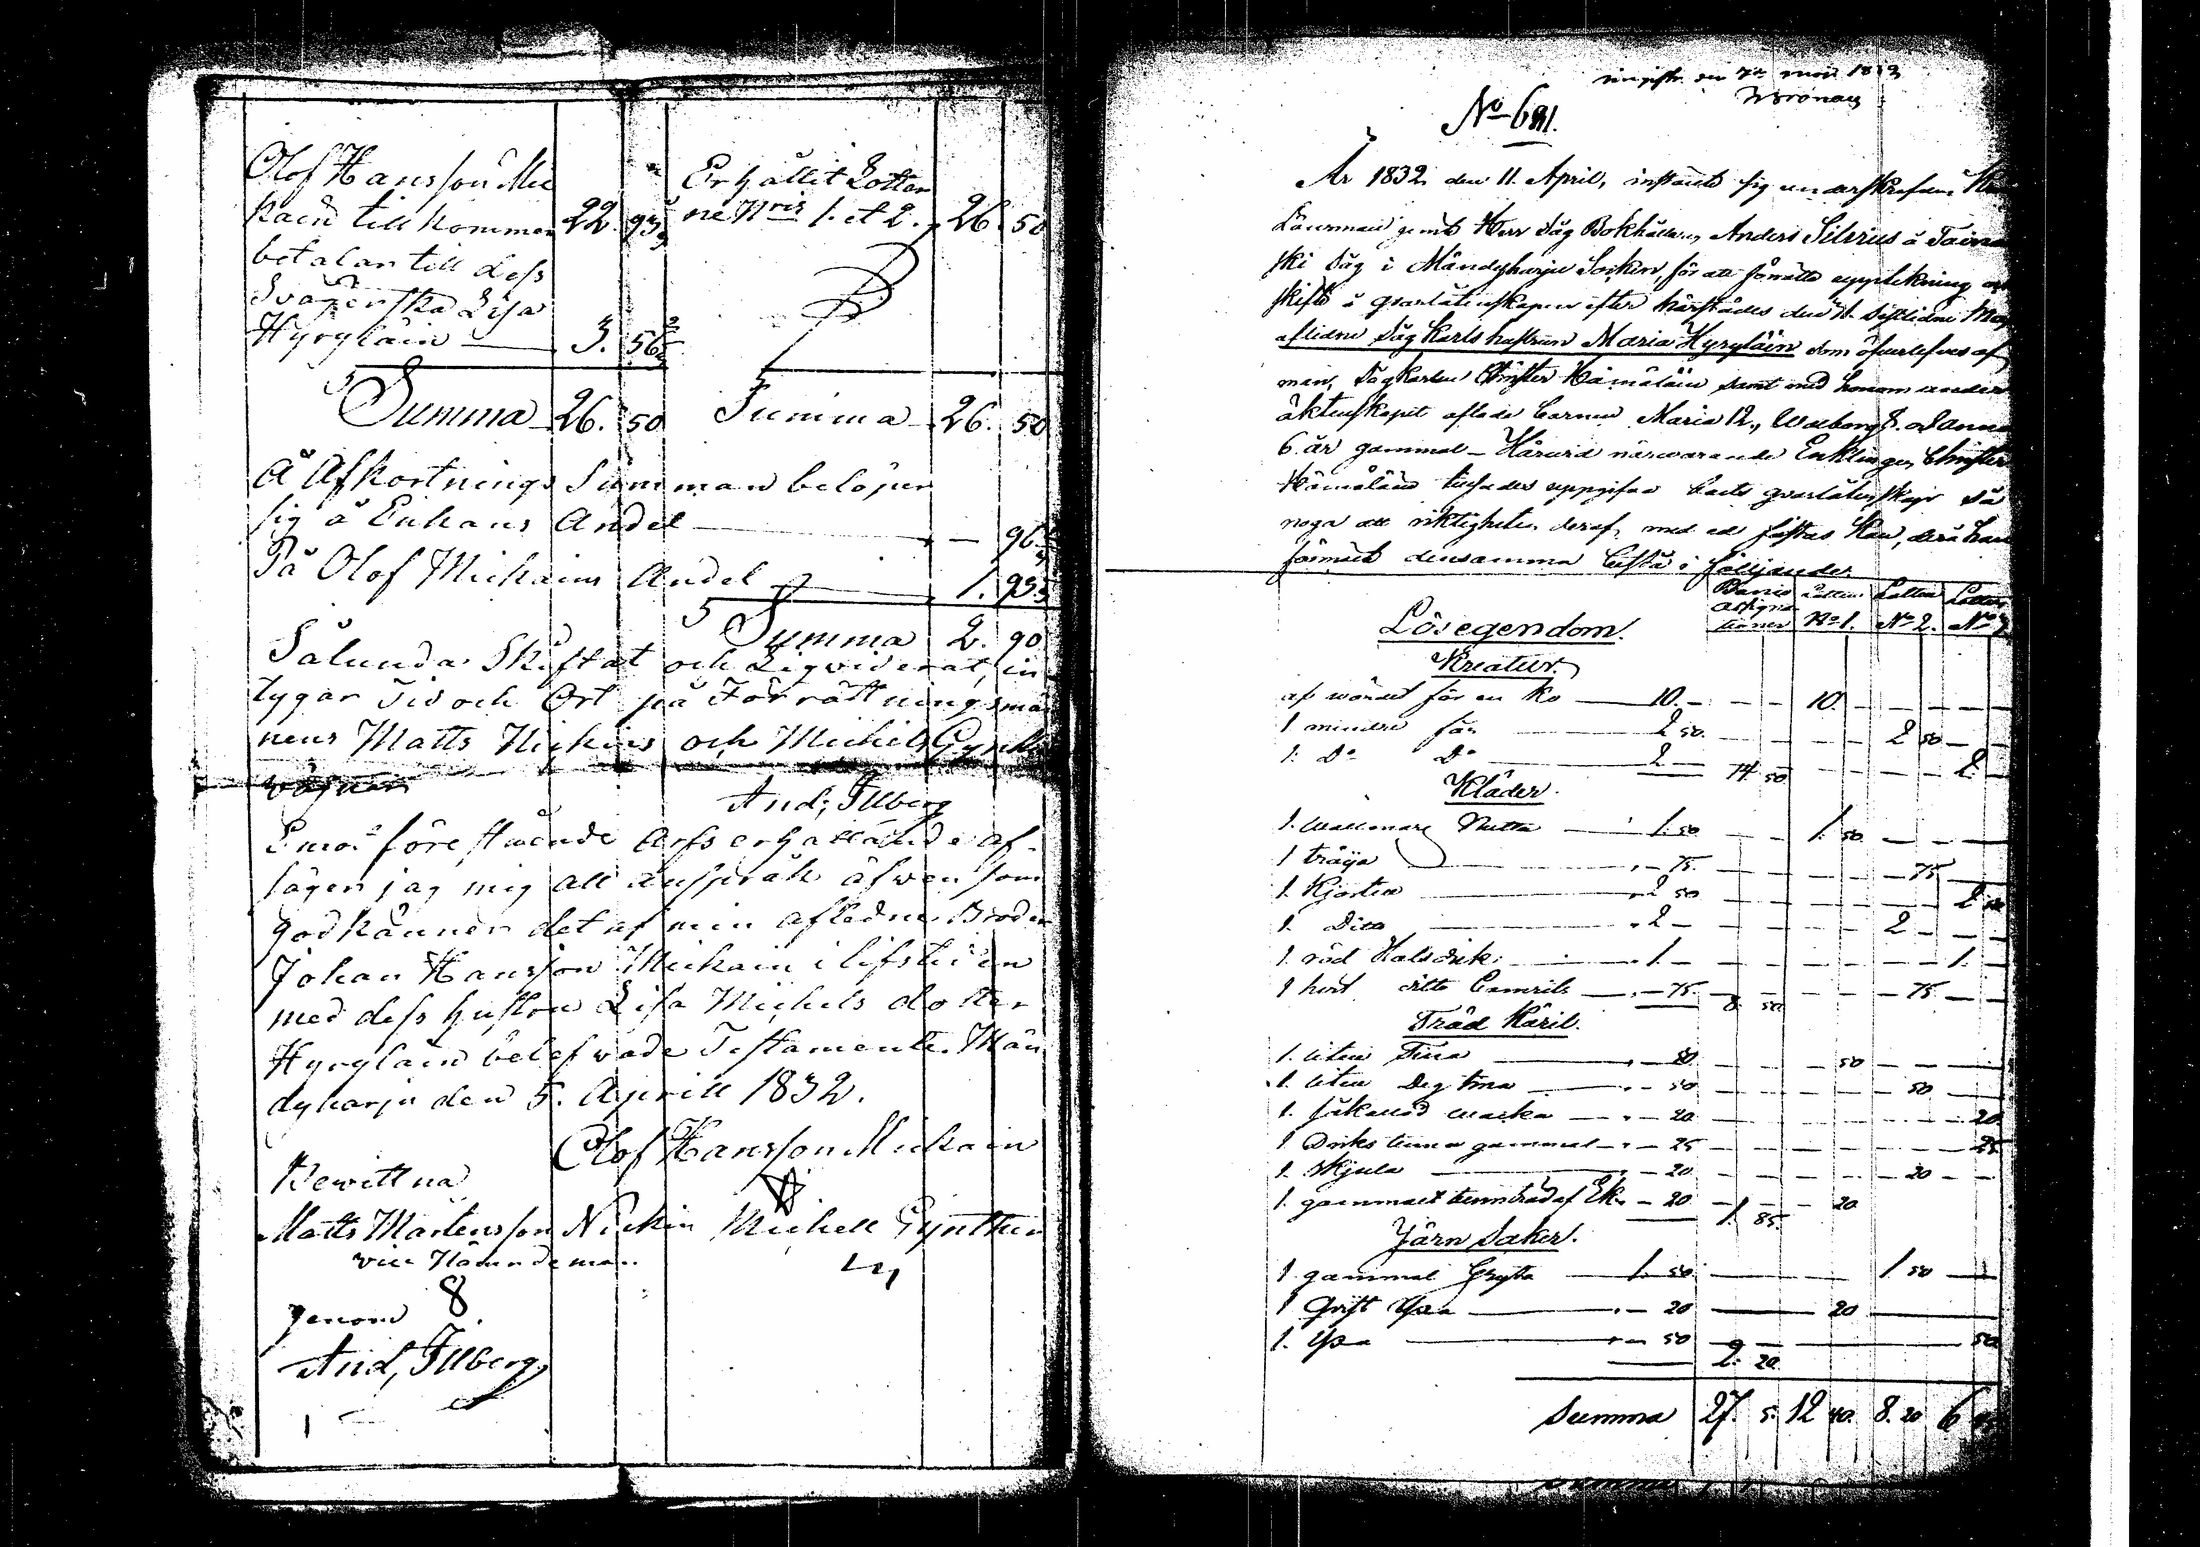 Olof Hansson Mic
kain till kommer 22. 93 1/3
betalar till dess
Svägerska Lisa
Hyryläin 3. 56 2/3
Erhållit Lotter
ne N:ris 1. et 2. 26. 50
Summa 26. 50 Summa 26. 50
Å Afkortnings Summan belöper
sig å Enkans Andel — 96 2/3
På Olof Mickains Andel 1. 93 1/3
Summa 2. 90
Sålunda Skiftat och Liqviderat, in
tygar Tid och Ort på Förrättningsmän
nens Matts Nickins och Michel Gynth
vägnar
And; Illberg
Emot förestående Arfs erhållande af-
säger jag mig all anspråk äfwen som
godkänner det af min afledne Broder
Johan Hansson Mickain i lifstiden
med dess hustru Lisa Michels dotter
Hyryläin belefwade Testamente. Män
dyharju den 5. Aprill 1832.
Olof Hansson Mickain
Bewittna
Matts Mårtensson Nickin Michell Gynther
vice Nämndeman.
genom 8
And, Illberg
den 7de 1832
No 691.
År 1832 den 11. April, instälte sig underskrefven
Länsman jemte Herr Såg Bokhållaren Anders Silvius å
ski Såg i Mändyharju Socken, för att förrätta uppteckning och
skifte å qvarlåtenskapen efter härstädes den 11. sistlidne
aflidne Såg Karls hustrun Maria Hyryläin som öfverlefves af
man, Sågkarlen Christer Hämäläin samt med honom under
äktenskapet aflade barnen Maria 12, Walborg 8. o Anna
6 år gammal – Härvid närvarande Enklingen Christer
Hämäläin tillsades uppgifva boets qvarlåtenskap så
noga att riktigheten deraf med ed fästas kan, derå han
förmälte densamma bestå i följande.
Banco Assigna tioner Lotten No 1. Lotten No 2. Lotten No 3
Lösegendom.
Kreatur.
af wärdet för en Ko 10. — 10.
1 mindre får 2 50. 2 50
1. Do Do 2 — 14 50 2.
Kläder.
1. Wallmars 1. 50 1. 50
1 tröija — 75. 75
1. Kjortel 2 50 2 50
1. Dito 2 — 2
1. röd Halsduk 1. — 1.
1 hvit ditto — 75. 8. 50 75
Träd Käril.
1. liten Tina — 50. 50
1. liten Deg tina — 50 50
1. — 20 20
1 Dricks tunna gammal — 25 25
1. Skjula — 20 20
1. gammalt af Ek — 20 1. 85. 20
Järn Saker.
1 gammal Gryta 1. 50 1. 50
1 Yxa — 20 20
1. Yxa — 50 2. 20 50
Summa 27. 5. 12 40. 8. 20 6